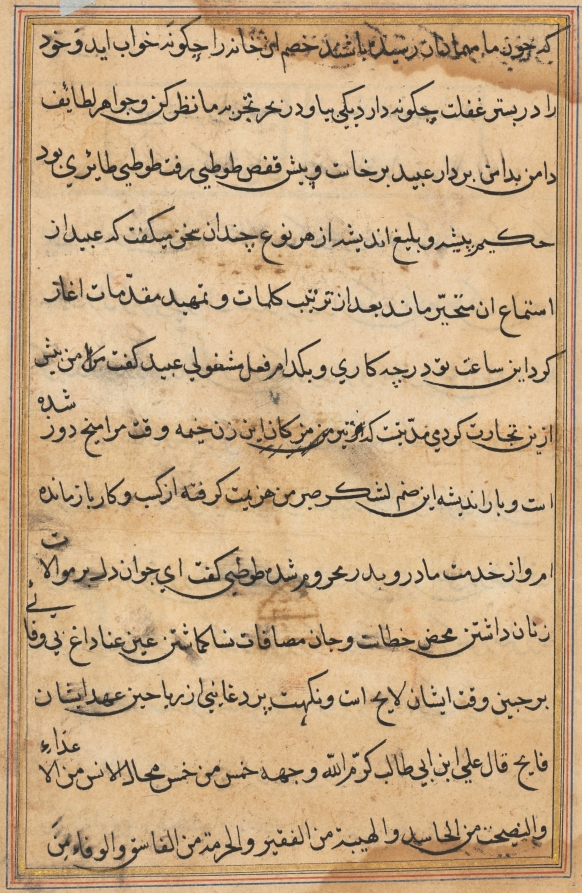 که چون ما مهمانان رسیده باشند خصم این خانه را چگونه خواب آید و خود
را در بستر غفلت چگونه دارد یکی بیا و در بحر تجربه ما نظر کن و جواهر لطائف
دامن بدامن بردار عبید برخاست و پیش قفص طوطی رفت طوطی طائری بود
حکیم پیشه و بلیغ اندیشه از هر نوع چندان سخن میگفت که عبید از
استماع ان متحیر ماند بعد از ترتیب کلمات و تمهید مقدمات اغاز
کرد این ساعت تو در چه کاری و بکدام فعل مشغولی عبید گفت من پیش
ازین تجارت کردمی مدتیست که تیر مژکان این زن خیمه وقت مرا میخ دوز
شده
است و بار اندیشه این صنم لشکر صبر من هزیمت گرفته از کسب و کار بازمانده
ام و از خدمت مادر و پدر محروم شده طوطی گفت ای جوان دل بر موالات
زنان داشتن محض خطاست و جان مصافات نسا کماشتن عین عنا داغ بی وفائی
بر جبین وقت ایشان لایح است و نکهت بد دغایی از ریاحین عهد ایشان
فایح قال علی ابن ابی طالب کرم الله وجهه خمس من خمس محال الانس من الاعداء
والنصیحت من الحاسد والهیبة من الفقیر والحرمة من الفاسق والوفاء من